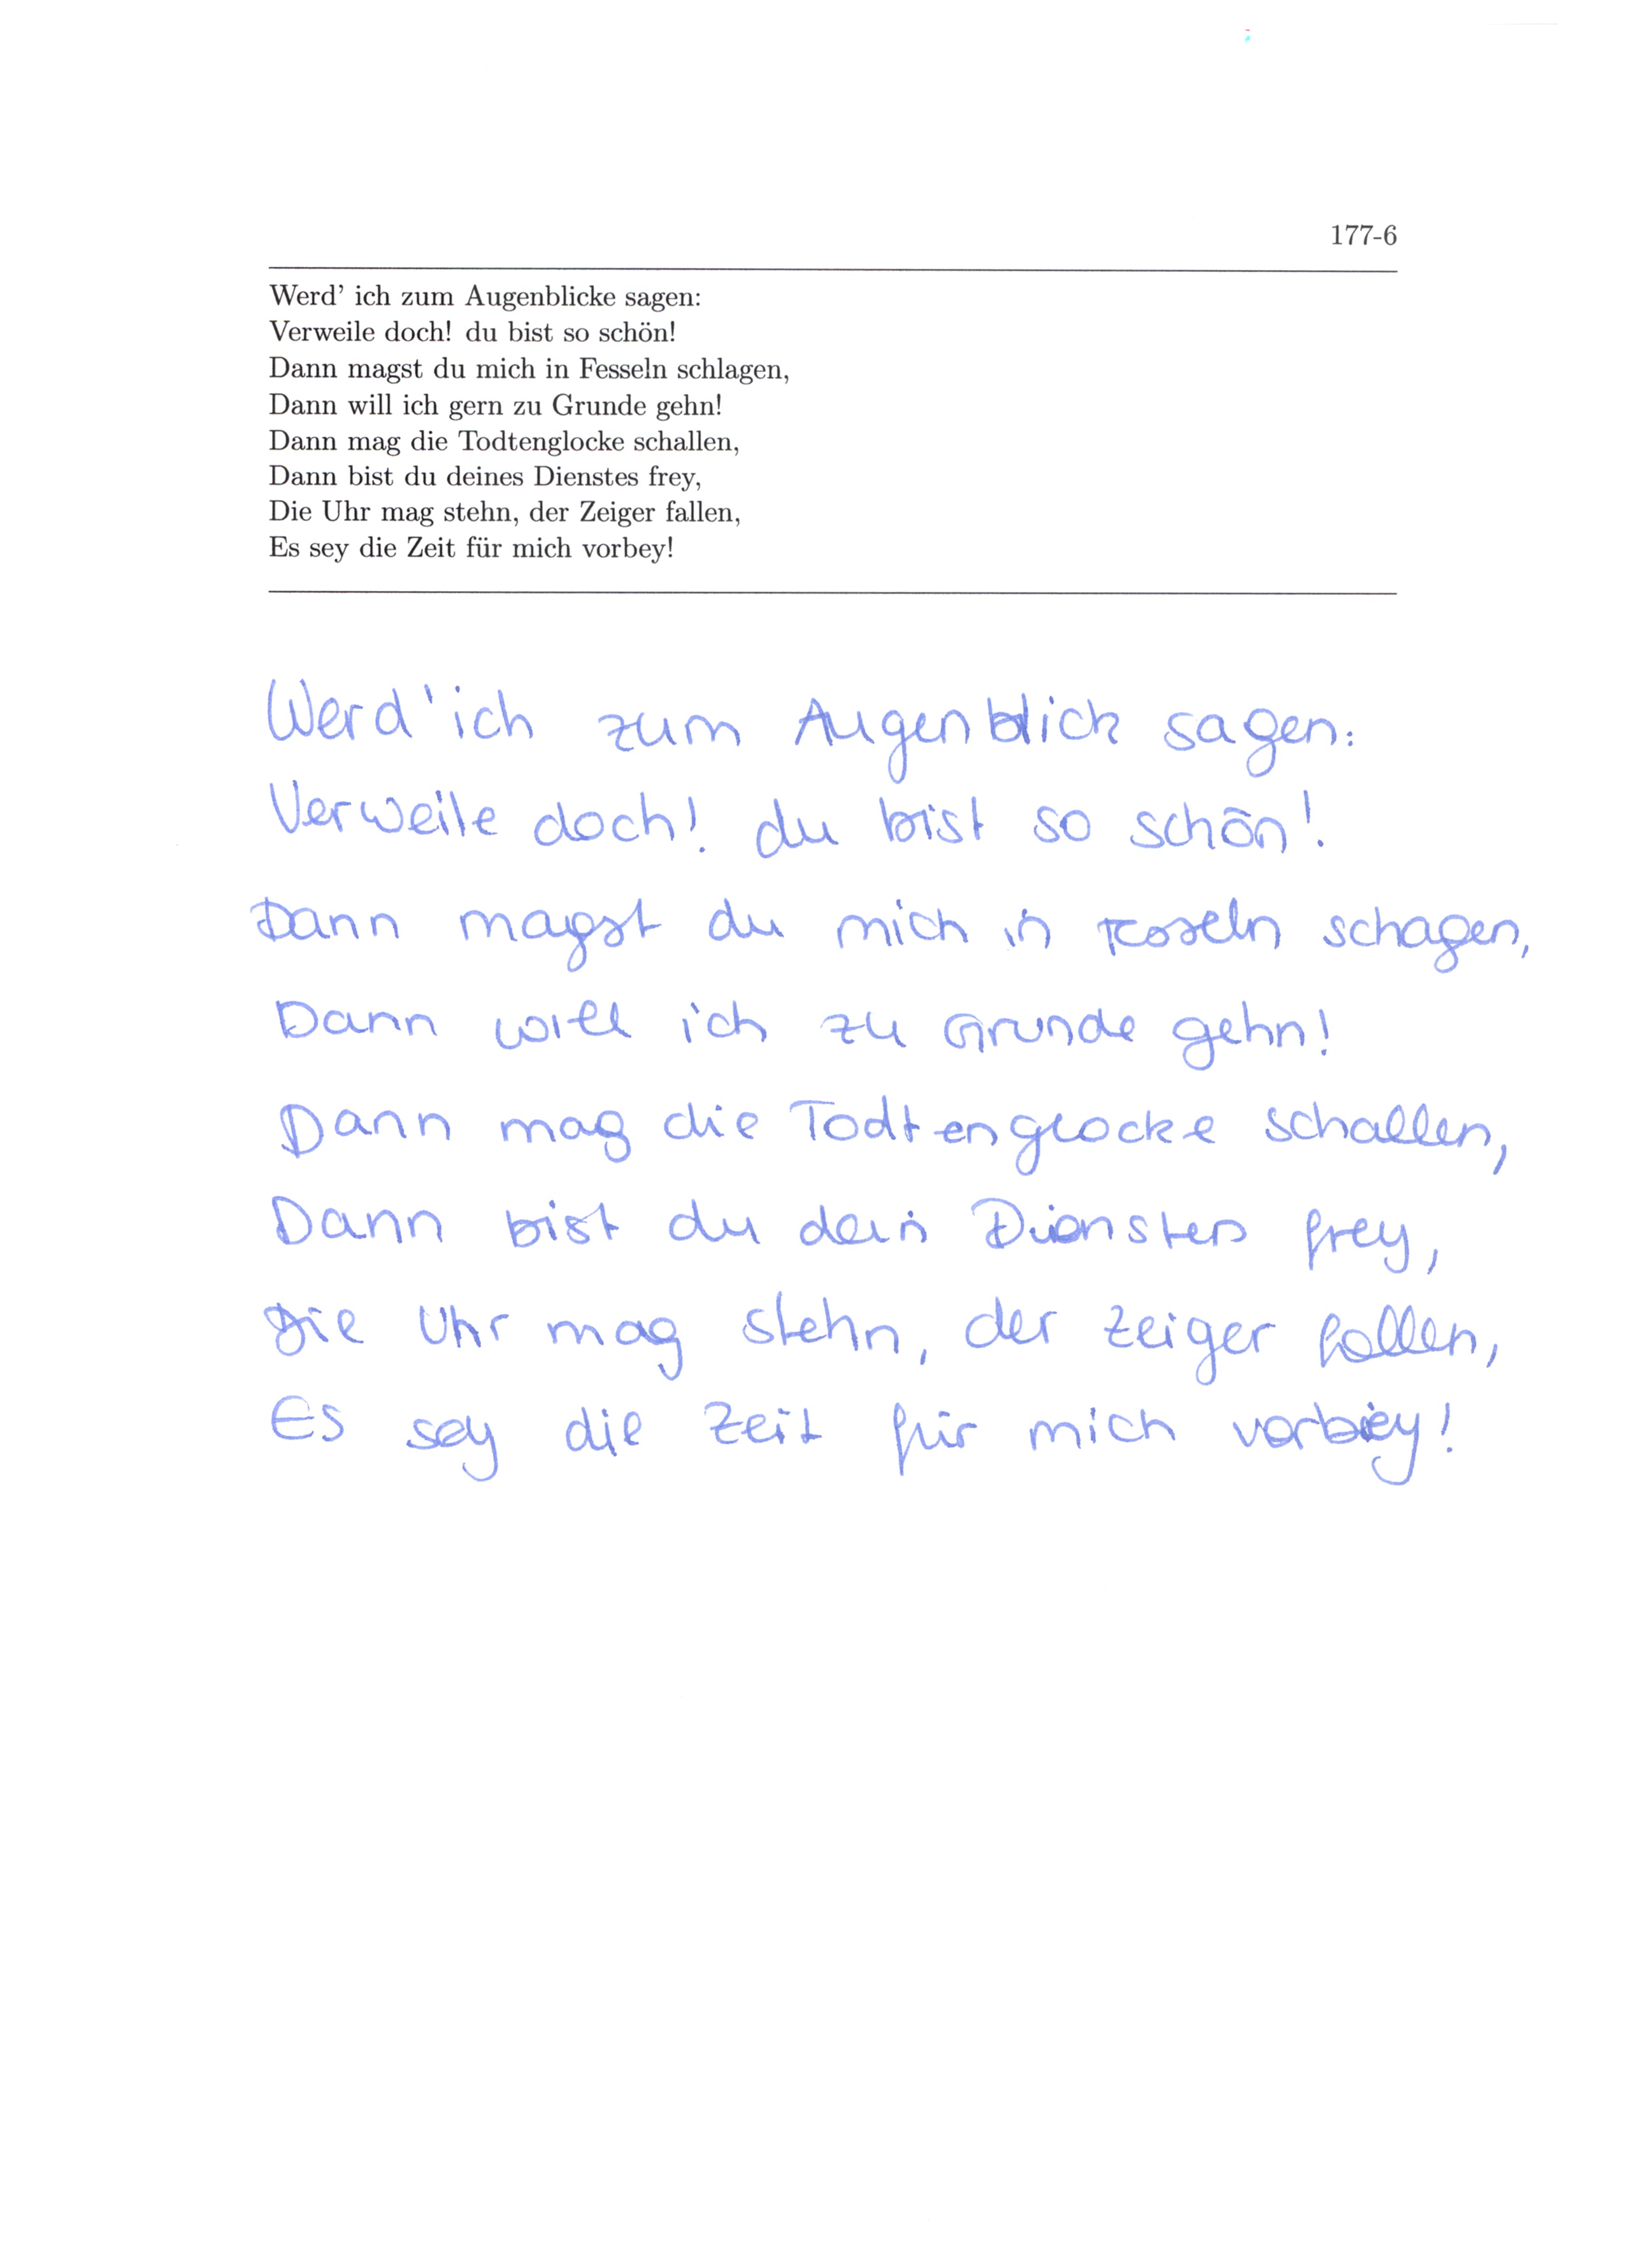 177-6
Werd' ich zum Augenblicke sagen:
Verweile doch! du bist so schön!
Dann magst du mich in Fesseln schlagen,
Dann will ich gern zu Grunde gehn!
Dann mag die Todtenglocke schallen,
Dann bist du deines Dienstes frey,
Die Uhr mag stehn, der Zeiger fallen,
Es sey die Zeit für mich vorbey!
Werd' ich zum Augenblick sagen:
Verweile doch! du bist so schön!
Dann magst du mich in schagen,
Dann will ich zu Grunde gehn!
Dann mag die Todtenglocke schallen,
Dann bist du dein frey,
Die Uhr mag stehn, der Zeiger fallen,
Es sey die Zeit für mich vorbey!